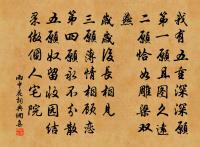 我有五重深深願
第一願且圖久遠
二願恰如雕梁雙
燕
歲歲後長相見
三願薄情相顧戀
第四願永不分散
五願奴留收因結
果做個大宅院